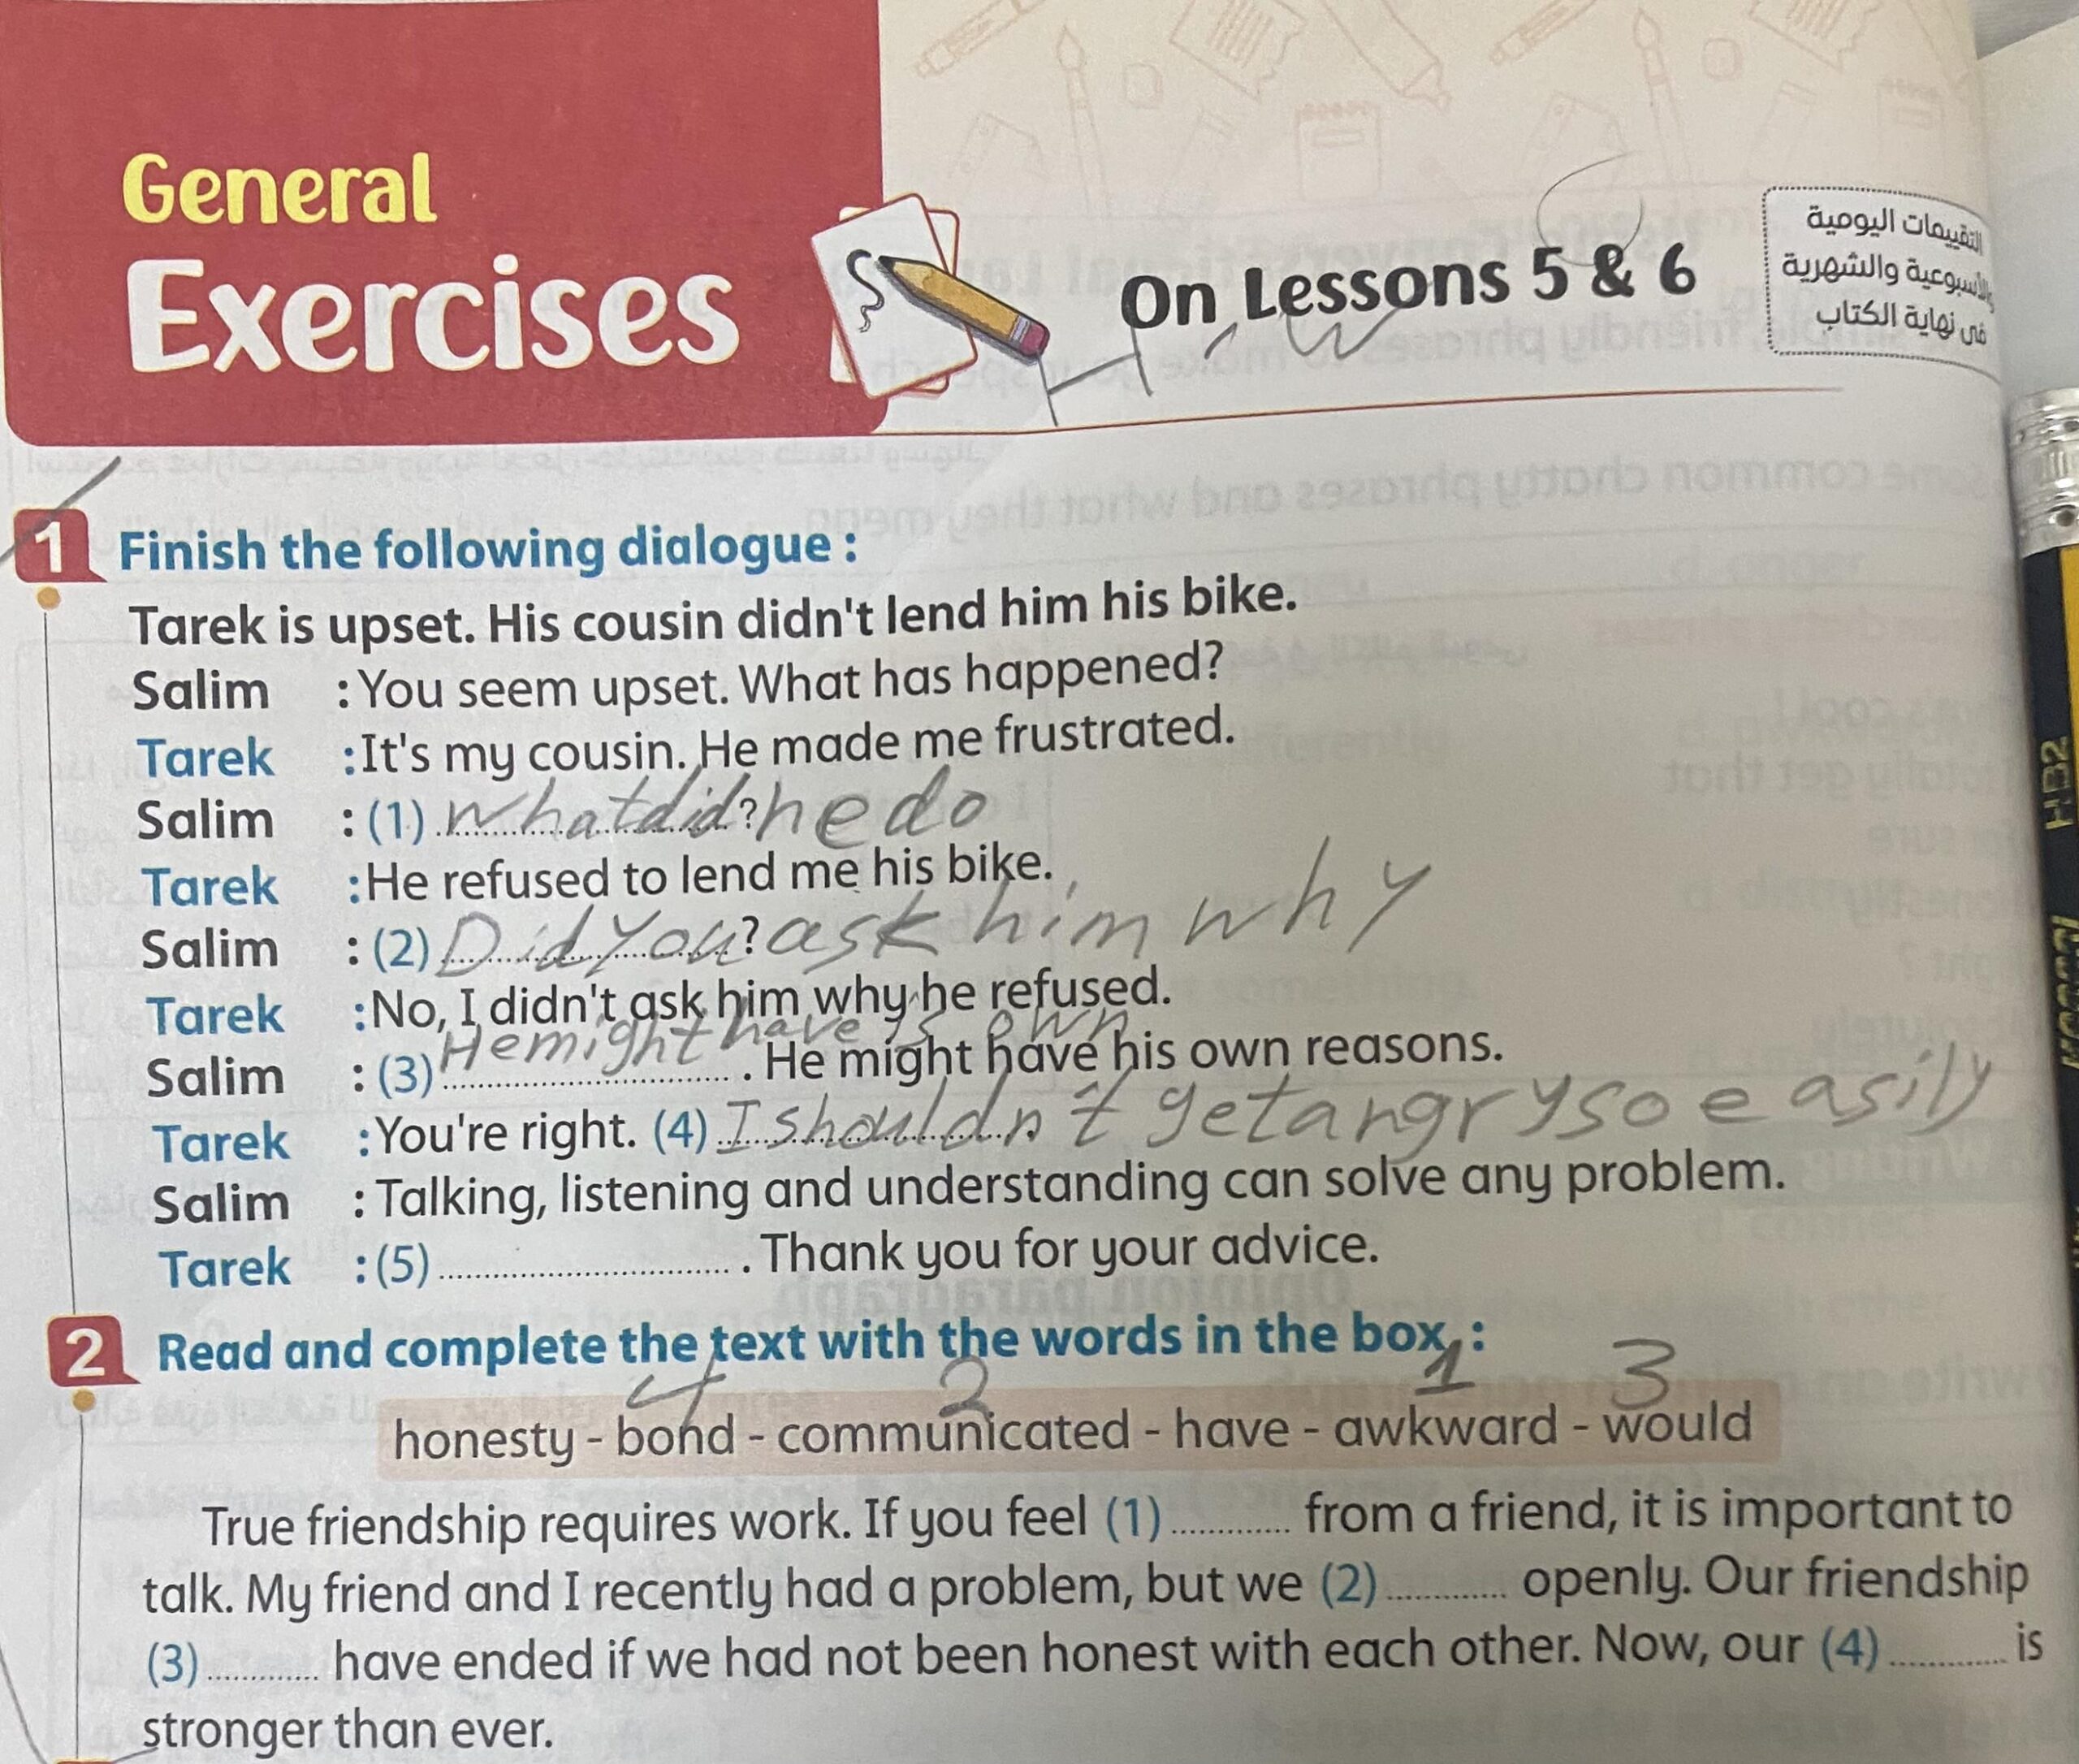 General
Exercises
On Lessons 5 & 6
التقييمات اليومية
والأسبوعية والشهرية
فى نهاية الكتاب
1 Finish the following dialogue :
Tarek is upset. His cousin didn't lend him his bike.
Salim : You seem upset. What has happened?
Tarek : It's my cousin. He made me frustrated.
Salim : (1) what did ? he do
Tarek : He refused to lend me his bike.
Salim : (2) Did you ? ask him why
Tarek : No, I didn't ask him why he refused.
He might have is own
Salim : (3) ............ . He might have his own reasons.
Tarek : You're right. (4) I shouldn't get angry so easily
Salim : Talking, listening and understanding can solve any problem.
Tarek : (5) ............ . Thank you for your advice.
2 Read and complete the text with the words in the box :
4 2 1 3
honesty - bond - communicated - have - awkward - would
True friendship requires work. If you feel (1) ............ from a friend, it is important to
talk. My friend and I recently had a problem, but we (2) ............ openly. Our friendship
(3) ............ have ended if we had not been honest with each other. Now, our (4) ............ is
stronger than ever.
HB2